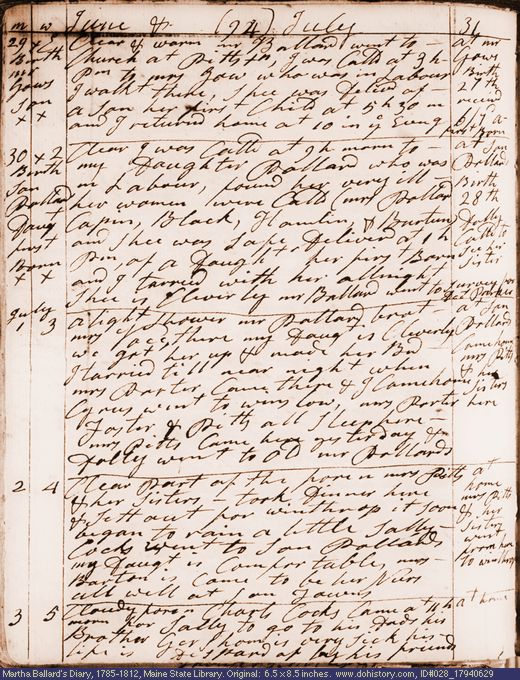 m w June & (94) July 31
29 Clear & warm mr Ballard went to
Birth Church at Pittston, I was Calld at 3 h
mr Pm to mrs Gow who was in Labour
Gows I walkt there, Shee was Deliv'd of
Son a Son her first Child at 5 h 30 m
x x and I returned home at 10 in ye Evng
at mr
Gows
Birth
27th
first Born
30 x 2 Clear I was Calld at 9 h morn to
Birth my Daughter Ballard who was
Son in Labour, found her very ill
Ballard her women were Calld (mrs Pollard
Daugt Capin, Black, Hamlin, & Burtun)
first and Shee was Safe Deliverd at 1 h
Born Pm of a Daught her first Born
x x and I tarried with her allnight
Shee is Cleverly mr Ballard went to Survey for
at Son
Ballards
Birth
28th
Dolly
Calld to
See her
Sister
July
1 3 a light Shower mr Ballard
there my Daug is Cleverly
we got her up & made her Bed
I tarried till near night when
mrs Porter Came there & I Came home
Cyrus went to winslow, mrs Porter here
Foster & Pitts all Sleep here
mrs Pitts Came here yesterday Pm
Dolly went to Old mr Pollards
at Son
Ballards
Came home
mrs Pitts
& her
Sisters
here
2 4 Clear Part of the foren n mrs Pitts
& her Sisters took Dinner here
& Sett out for winthrop it Soon
began to rain a little Sally
Cocks went to Son Ballards
my Daugt is Comfortable, mrs
Barton is Came to be her Nurs
all well at Son Towns
at
home
mrs Pitts
& her
Sisters
went
from here
to winthrop
3 5 Cloudy foren n Charls Cocks Came at 4 h
morn for Sally to go to his Dads his
Brother Gershom is very Sick his
life is Dispard of by his friends
at home
Martha Ballard's Diary, 1785-1812, Maine State Library. Original: 6.5 x 8.5 inches. www.dohistory.com, ID#028_17940629